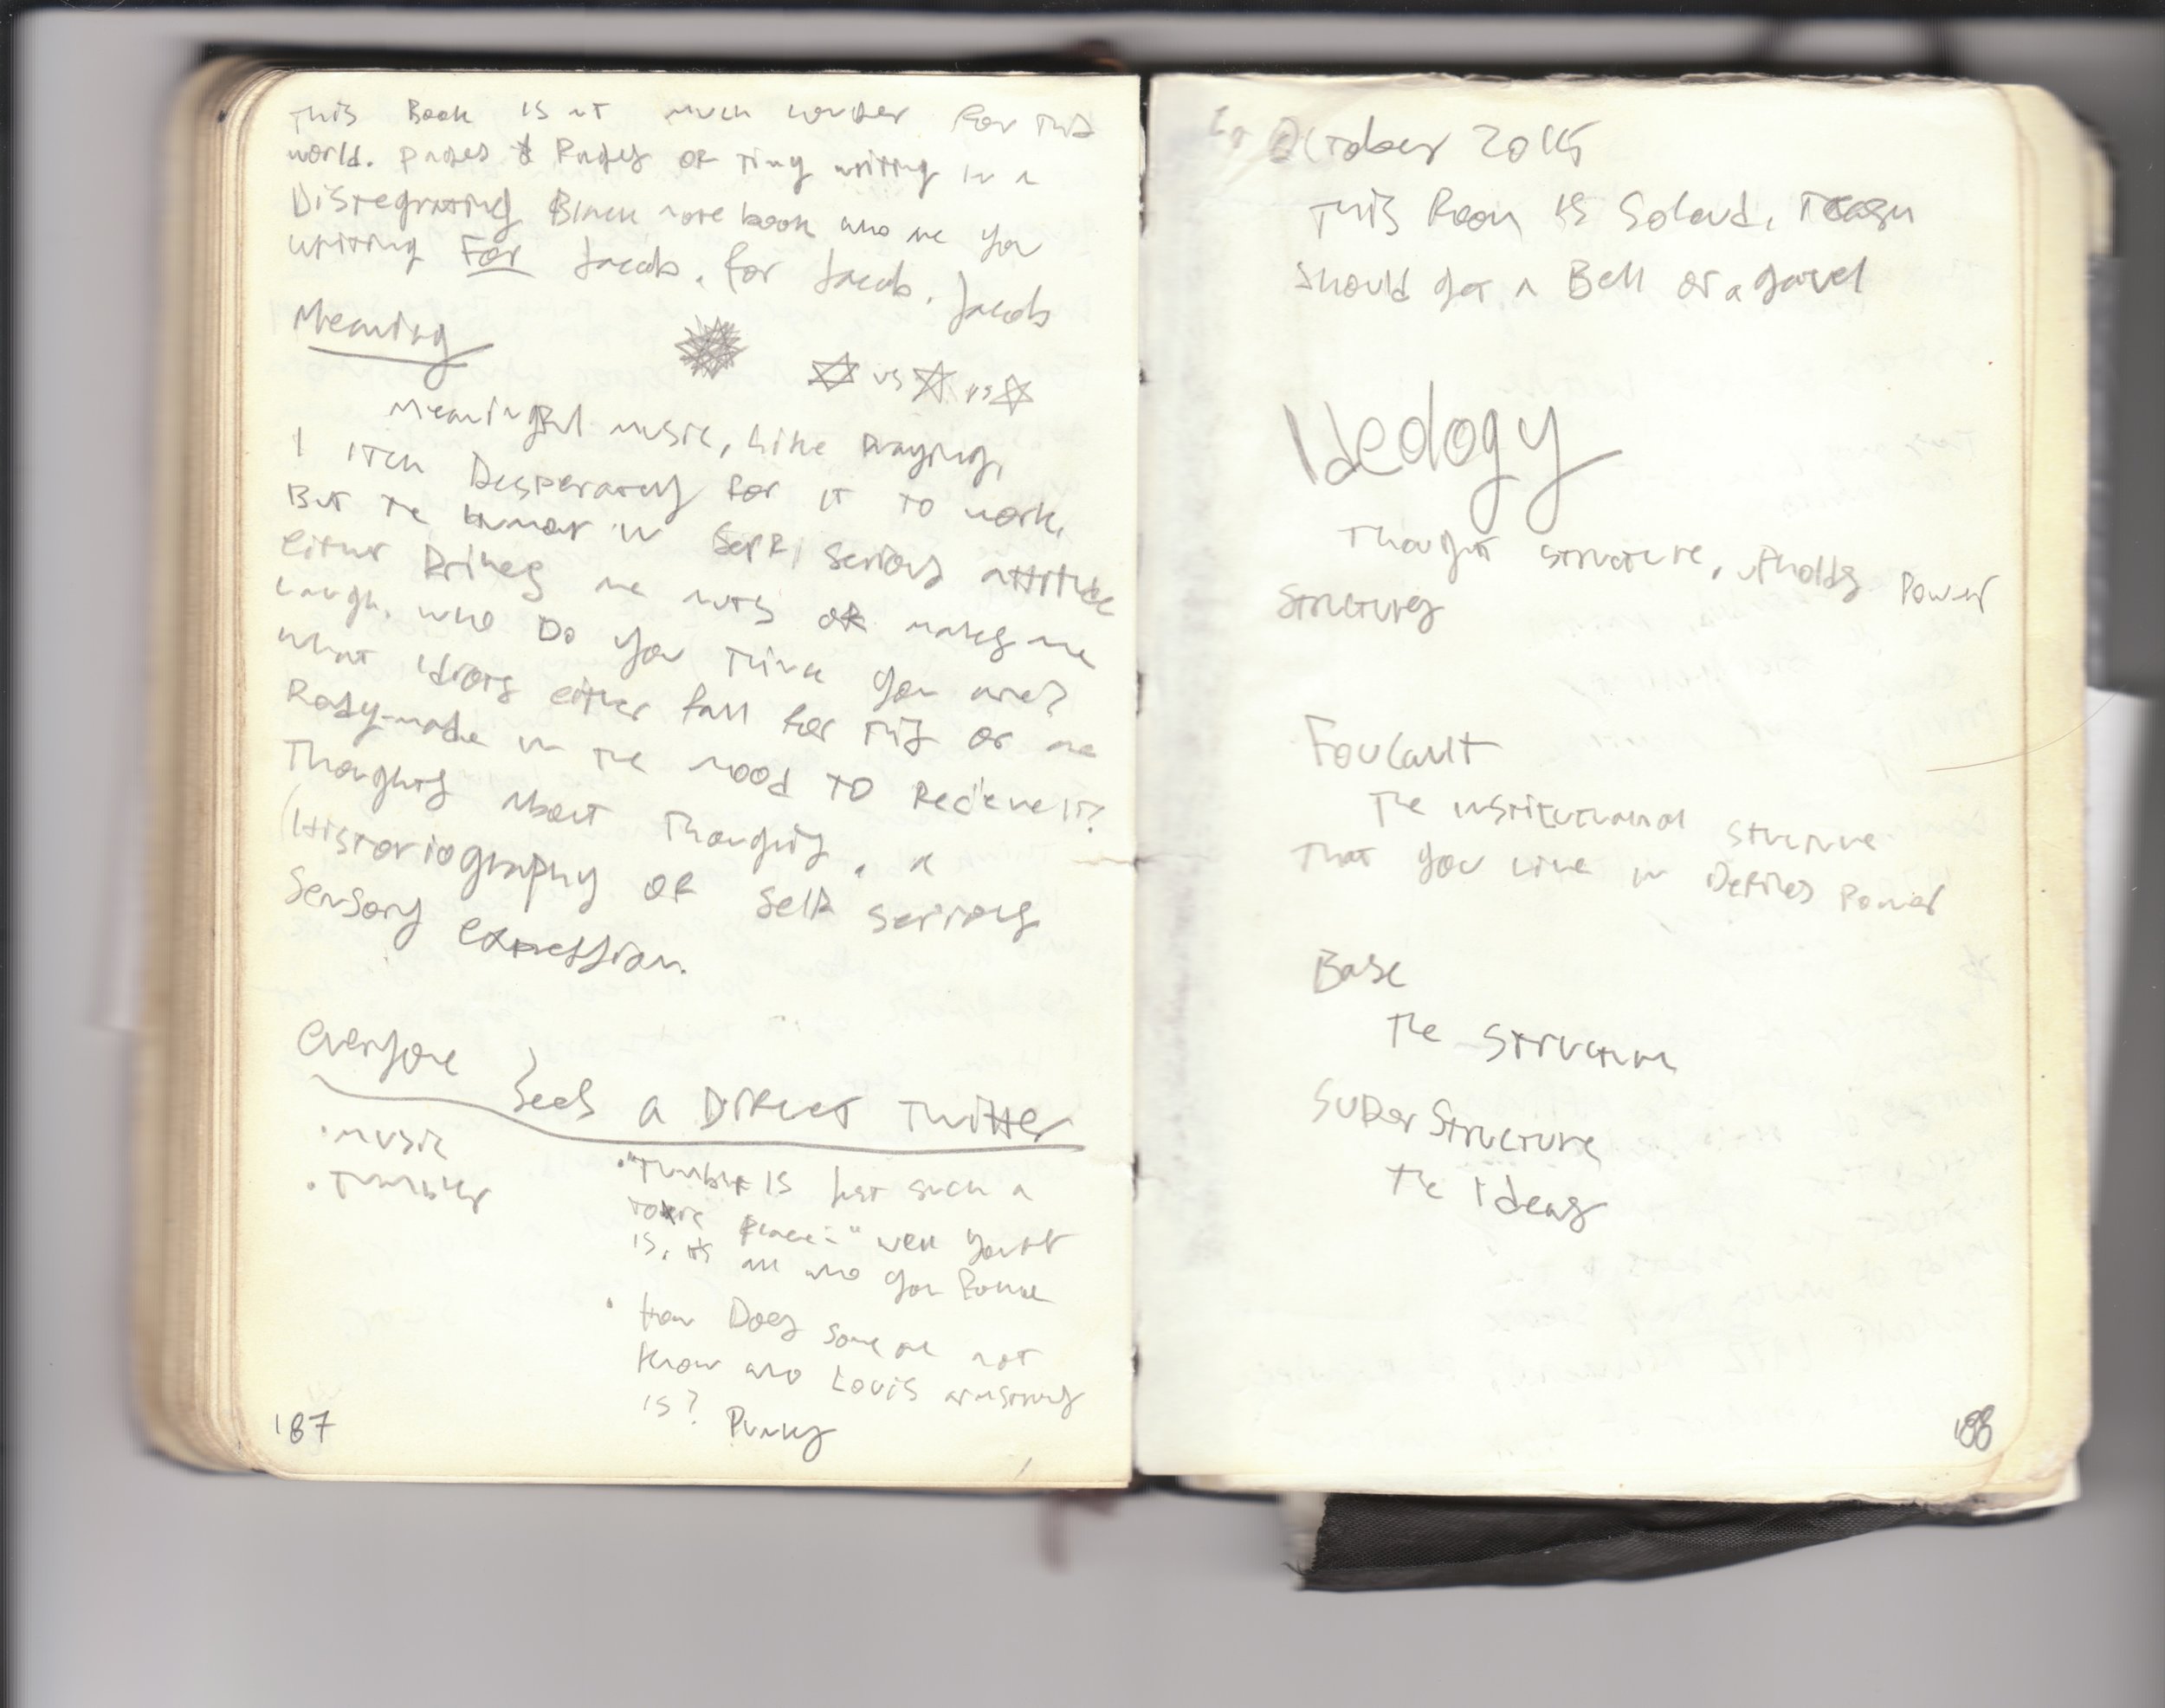 This Book is nt much longer for this
world. Pages & Pages of tiny writing in a
Disregrating Black note book who are you
writing For Jacob. for Jacob. Jacob
Meaning
vs vs
Meaningful music, like praying,
I itch Desperately for it to work,
But the humor in self, serious attitude
either Drives me nuts or makes me
laugh. who Do you think you are?
what idiots either fall for this or are
Ready-made in the mood to Recieve it?
Thoughts About Thoughts, a
(Historiography of self serious
sensory expression.
everyone Sees a Different Twitter
• music
• Tumbler
• "Tumblr is just such a
toxic place:" well yours
is, its all who you follow
• How Does some one not
know who Louis armstrong
is?
Punky
187
October 2015
This Room is so loud,
should get a Bell or a gavel
Ideology
Thought structure, upholds Power
Structures
Foucault
The institutional structure
That you live in Defines Power
Base
The structure
Super Structure
The Ideas
188